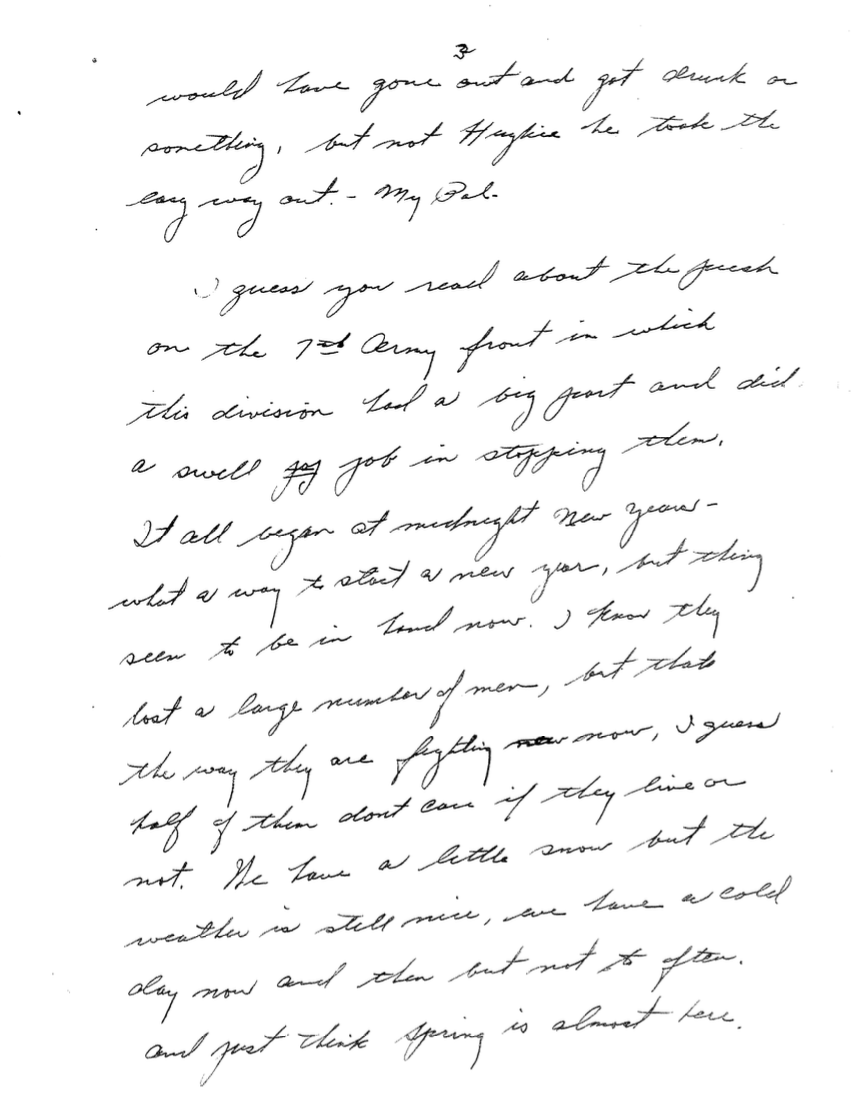 3
would have gone out and got drunk or
something, but not Hughie he took the
easy way out. - My Pal-
I guess you read about the push
on the 7th Army front in which
this division had a big part and did
a swell job in stopping them.
It all began at midnight New years-
what a way to start a new year, but thing
seem to be in hand now. I know they
lost a large number of men, but thats
the way they are fighting now now, I guess
half of them dont care if they live or
not. We have a little snow but the
weather is still nice, we have a cold
day now and then but not to often.
and just think Spring is almost here.